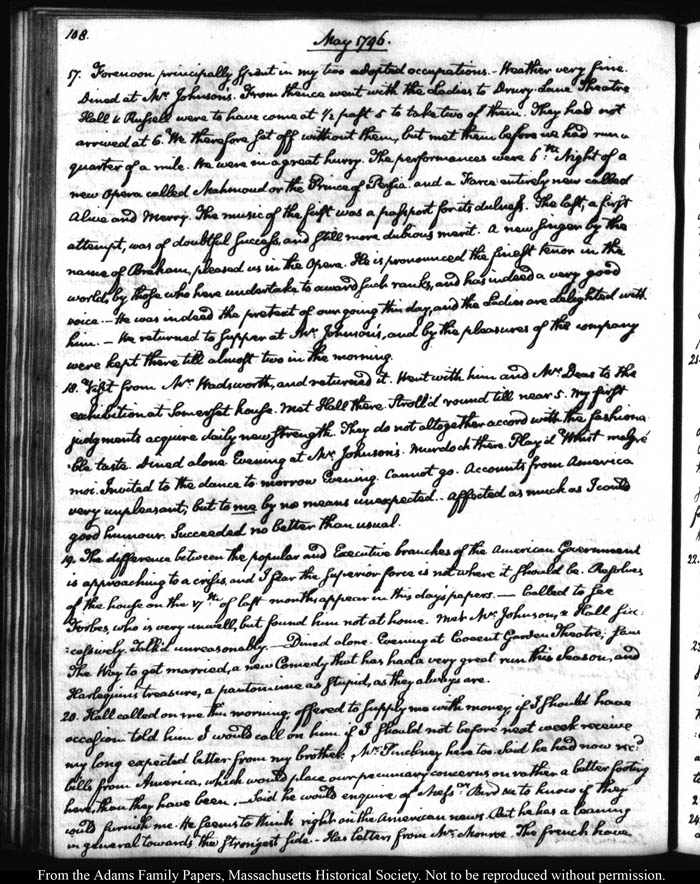 108.
May 1796.
17. Forenoon principally spent in my two adopted occupations. Weather very fine.
Dined at Mr. Johnson's. From thence went with the Ladies to Drury-Lane Theatre
Hall & Russell were to have come at 1/2 past 5 to take two of them. They had not
arrived at 6. We therefore set off without them, but met them before we had run a
quarter of a mile. We were in a great hurry. The performances were 6th. Night of a
new Opera called Mahmoud or the Prince of Persia. and a Farce entirely new called
Alive and Merry. The music of the first was a passport for its dulness. The last, a first
attempt, was of doubtful success, and still more dubious merit. A new singer by the
name of Braham, pleased us in the Opera. He is pronounced the finest tenor in the
world, by those who here undertake to award such ranks, and has indeed a very good
voice.— He was indeed the pretext of our going this day, and the Ladies are delighted with
him.— We returned to supper at Mr. Johnson's, and by the pleasures of the company
were kept there till almost two in the morning.
18. Visit from Mr. Wadsworth, and returned it. Went with him and Mr. Deas to the
exhibition at Somerset house. Met Hall there. Stroll'd round till near 5. My first
judgments acquire daily new strength. They do not altogether accord with the fashiona
:ble taste. Dined alone. Evening at Mr. Johnson's. Murdoch there. Play'd Whist malgré
moi. Invited to the dance to morrow Evening. Cannot go. Accounts from America
very unpleasant; but to me by no means unexpected.— Affected as much as I could
good humour. Succeeded no better than usual.
19. The difference between the popular and Executive branches of the American Government
is approaching to a crisis, and I fear the superior force is not where it should be. Resolves
of the house on the 7th. of last month, appear in this day's papers.— Called to see
Forbes, who is very unwell, but found him not at home. Met Mr. Johnson, & Hall suc:
:cessively. Talk'd unreasonably.— Dined alone. Evening at Covent Garden Theatre; saw
The Way to get married, a new Comedy that has had a very great run this season, and
Harlequin's treasure, a pantomime as stupid, as they always are.
20. Hall called on me this morning; offered to supply me with money if I should have
occasion. told him I would call on him if I should not before next week receive
my long expected letter from my brother. Mr. Pinckney here too. Said he had now recd.
bills from America, which would place our pecuniary concerns on rather a better footing
here, than they have been.— Said he would enquire of Messrs. Bird &c to know if they
could furnish me. He seems to think right on the American news. But he has a leaning
in general towards the strongest side.— Has letters from Mr. Monroe. The french have
From the Adams Family Papers, Massachusetts Historical Society. Not to be reproduced without permission.